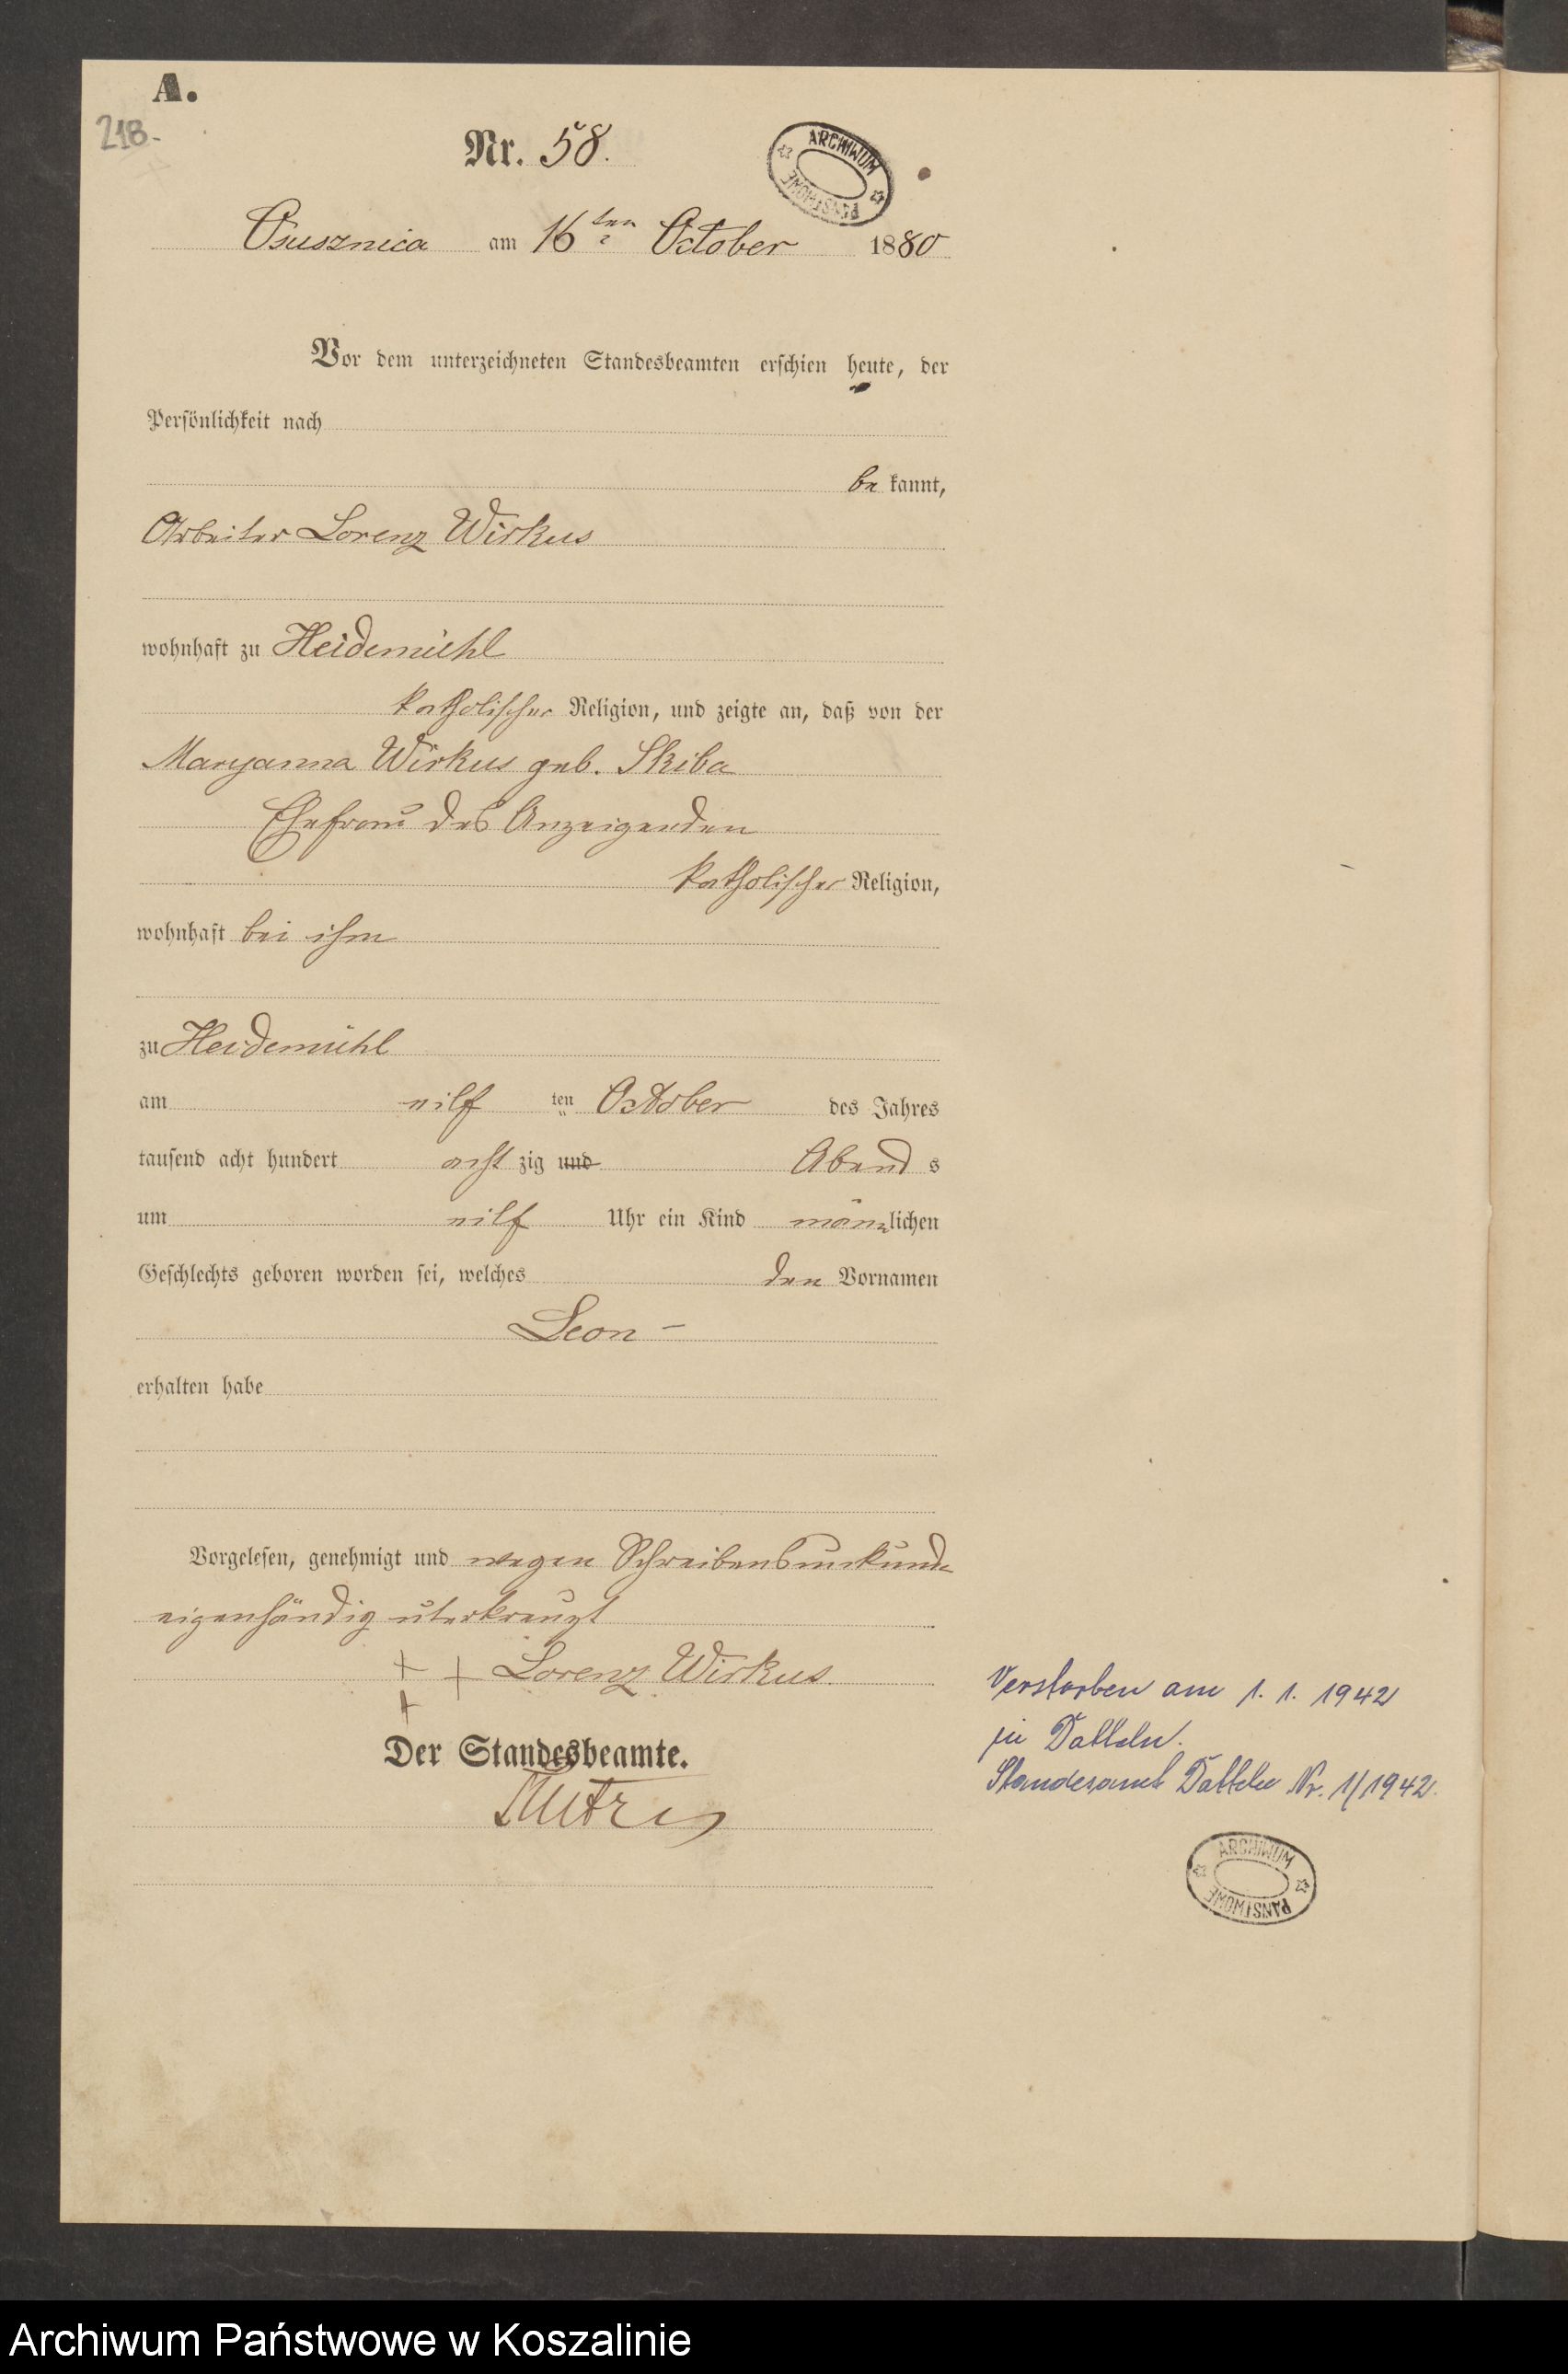 A.
218.
Nr. 58.
ARCHIWUM PAŃSTWOWE
Osusznica am 16ten October 1880
Vor dem unterzeichneten Standesbeamten erschien heute, der
Persönlichkeit nach
be kannt,
Arbeiter Lorenz Wirkus
wohnhaft zu Heidemühl
katholischer Religion, und zeigte an, daß von der
Maryanna Wirkus geb. Skiba
Ehefrau des Anzeigenden
katholischer Religion,
wohnhaft bei ihm
zu Heidemühl
am eilf ten October des Jahres
tausend acht hundert acht zig und Abend s
um eilf Uhr ein Kind männlichen
Geschlechts geboren worden sei, welches den Vornamen
Leon -
erhalten habe
Vorgelesen, genehmigt und wegen Schreibensunkunde
eigenhändig uterkreuzt
+ + Lorenz Wirkus.
+
Der Standesbeamte.
Verstorben am 1. 1. 1942
in Datteln.
Standesamt Datteln Nr. 1/1942.
ARCHIWUM PAŃSTWOWE
Archiwum Państwowe w Koszalinie